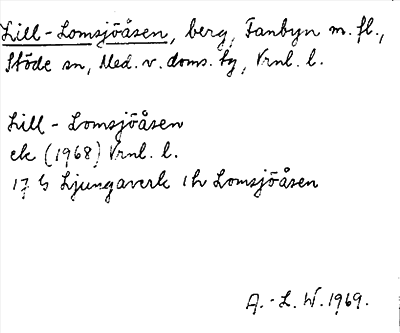 Lill-Lomsjöåsen, berg, Fanbyn m. fl.,
Stöde sn, Med. v. doms. tg, Vrnl. l.
Lill - Lomsjöåsen
ek (1968) Vrnl. l.
17 G Ljungaverk 1h Lomsjöåsen
A.-L. W. 1969.